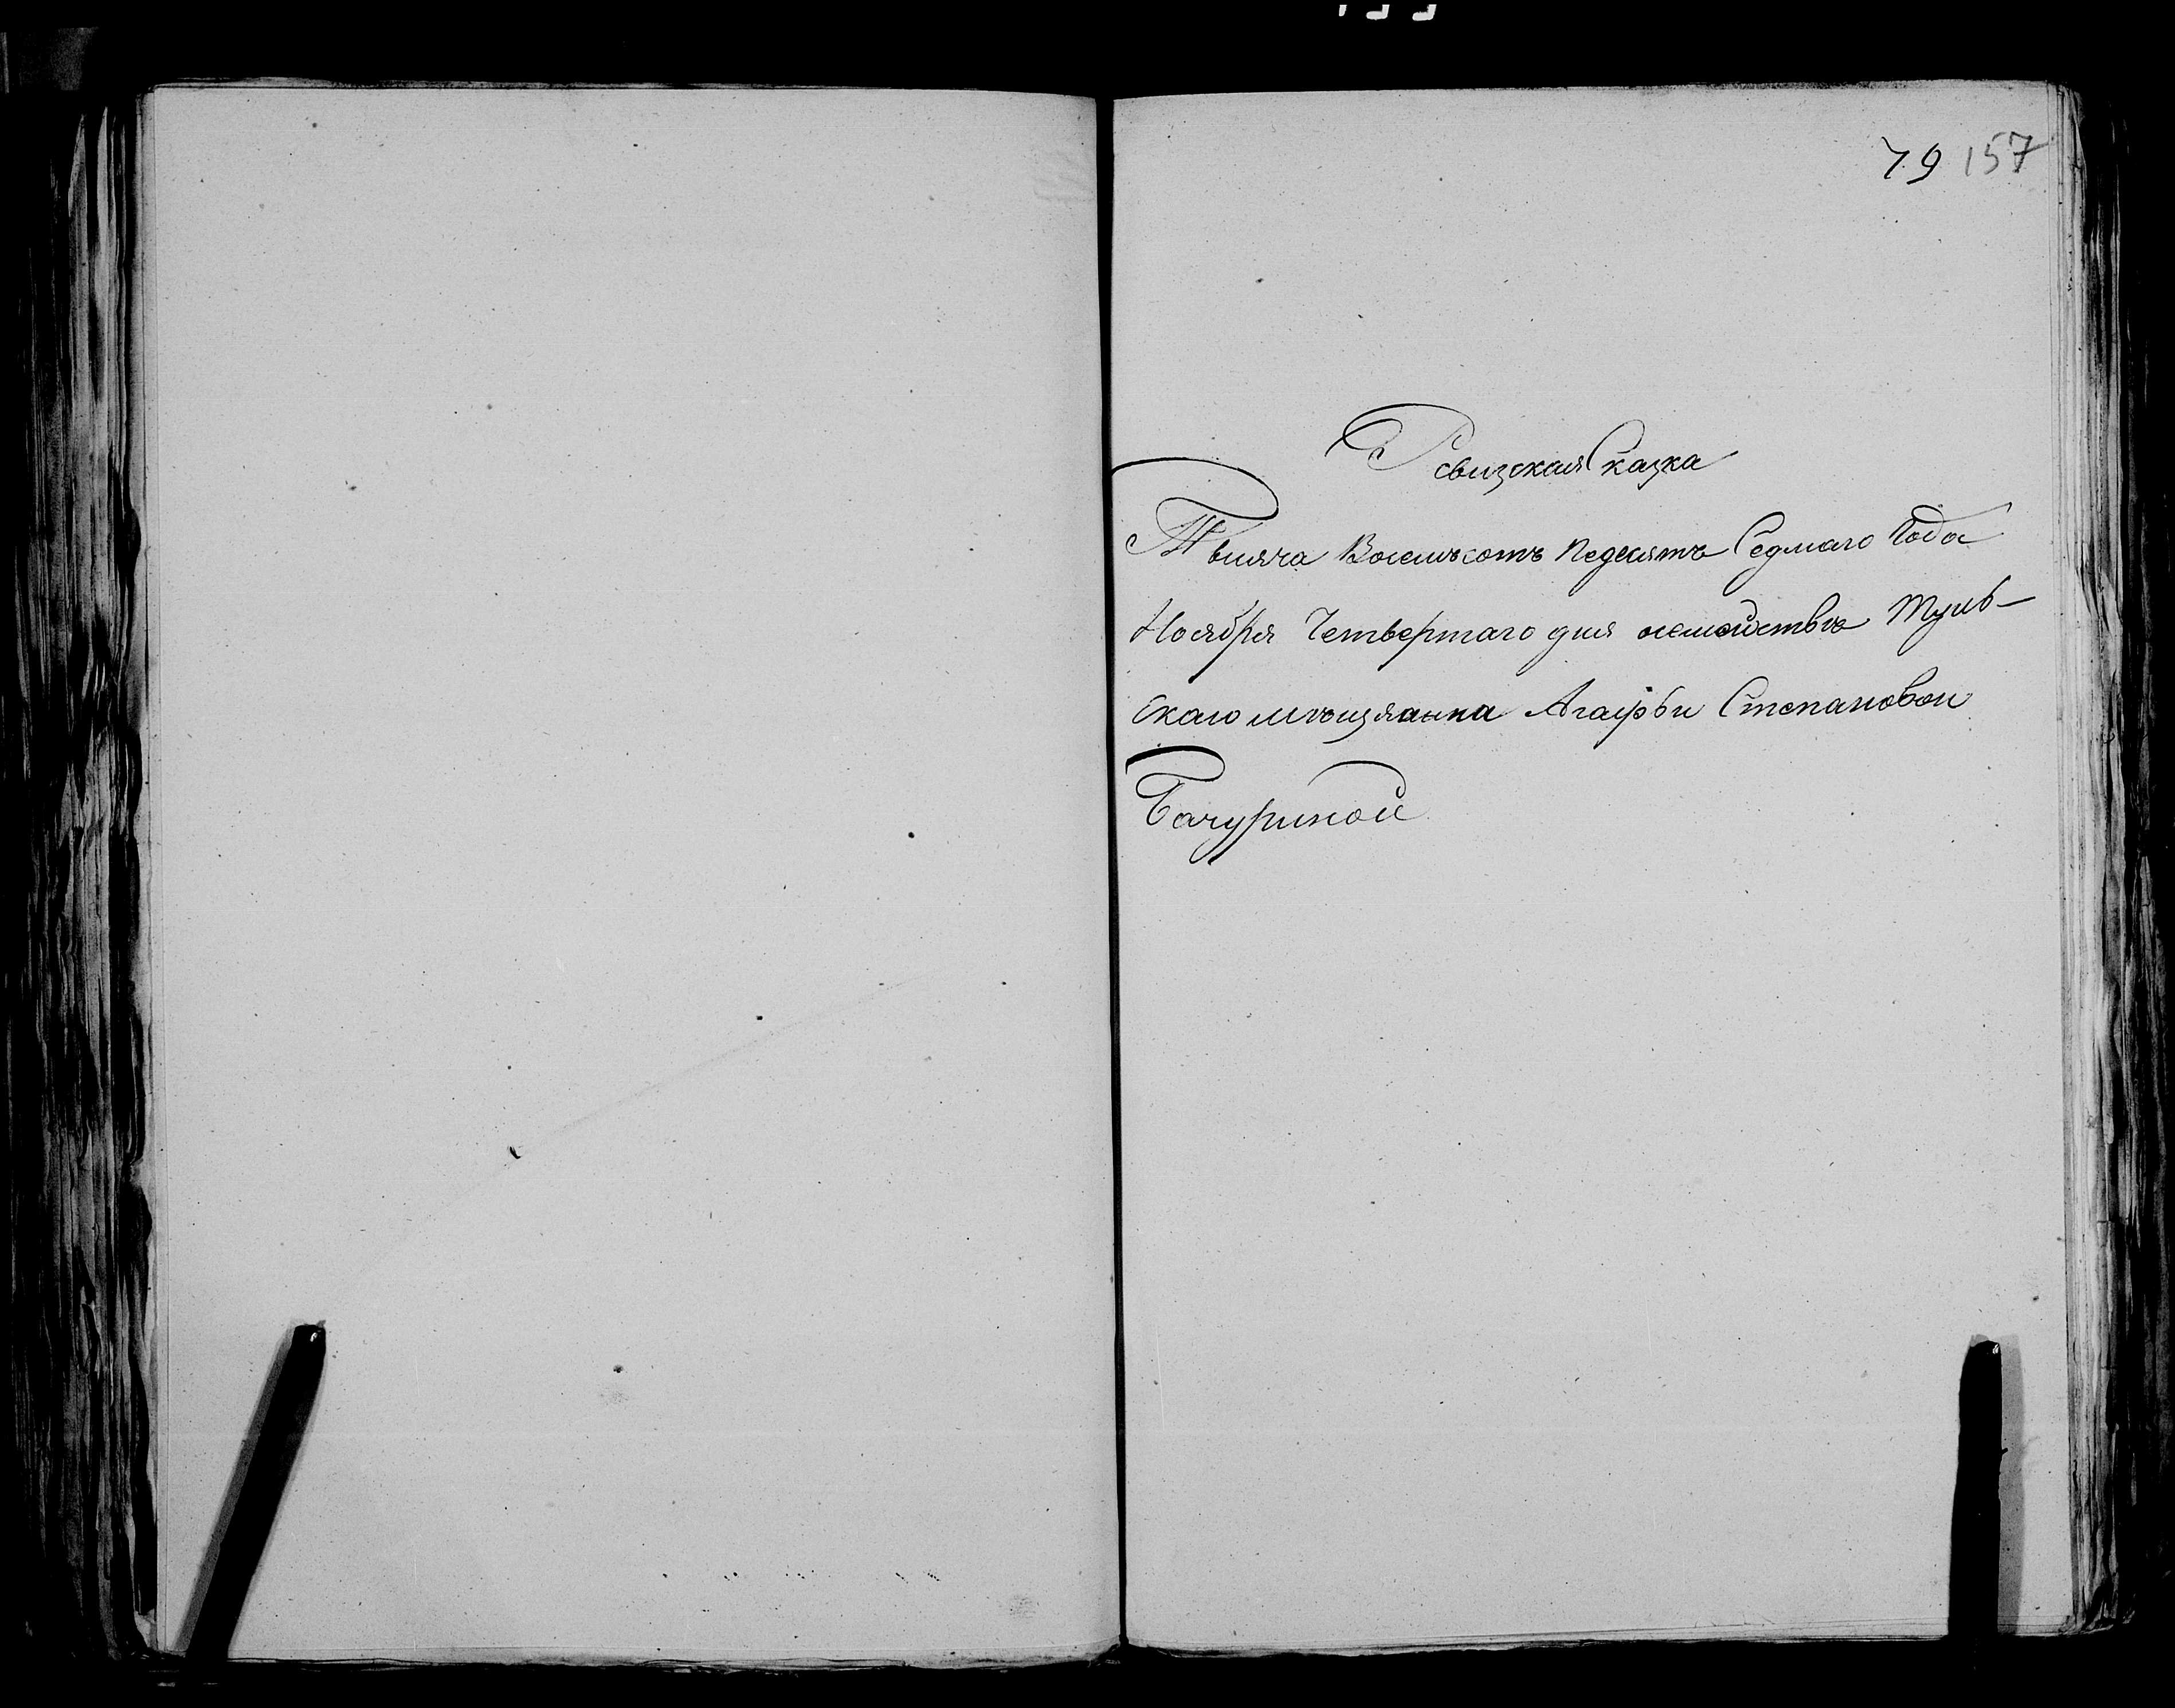 79 157
Ревизская Сказка
Тысяча Восемьсотъ педесятъ Седмаго Года
Ноября Четвертаго дня семейства Туль-
скаго мѣщянина Агафьи Степановои
Бачуриной